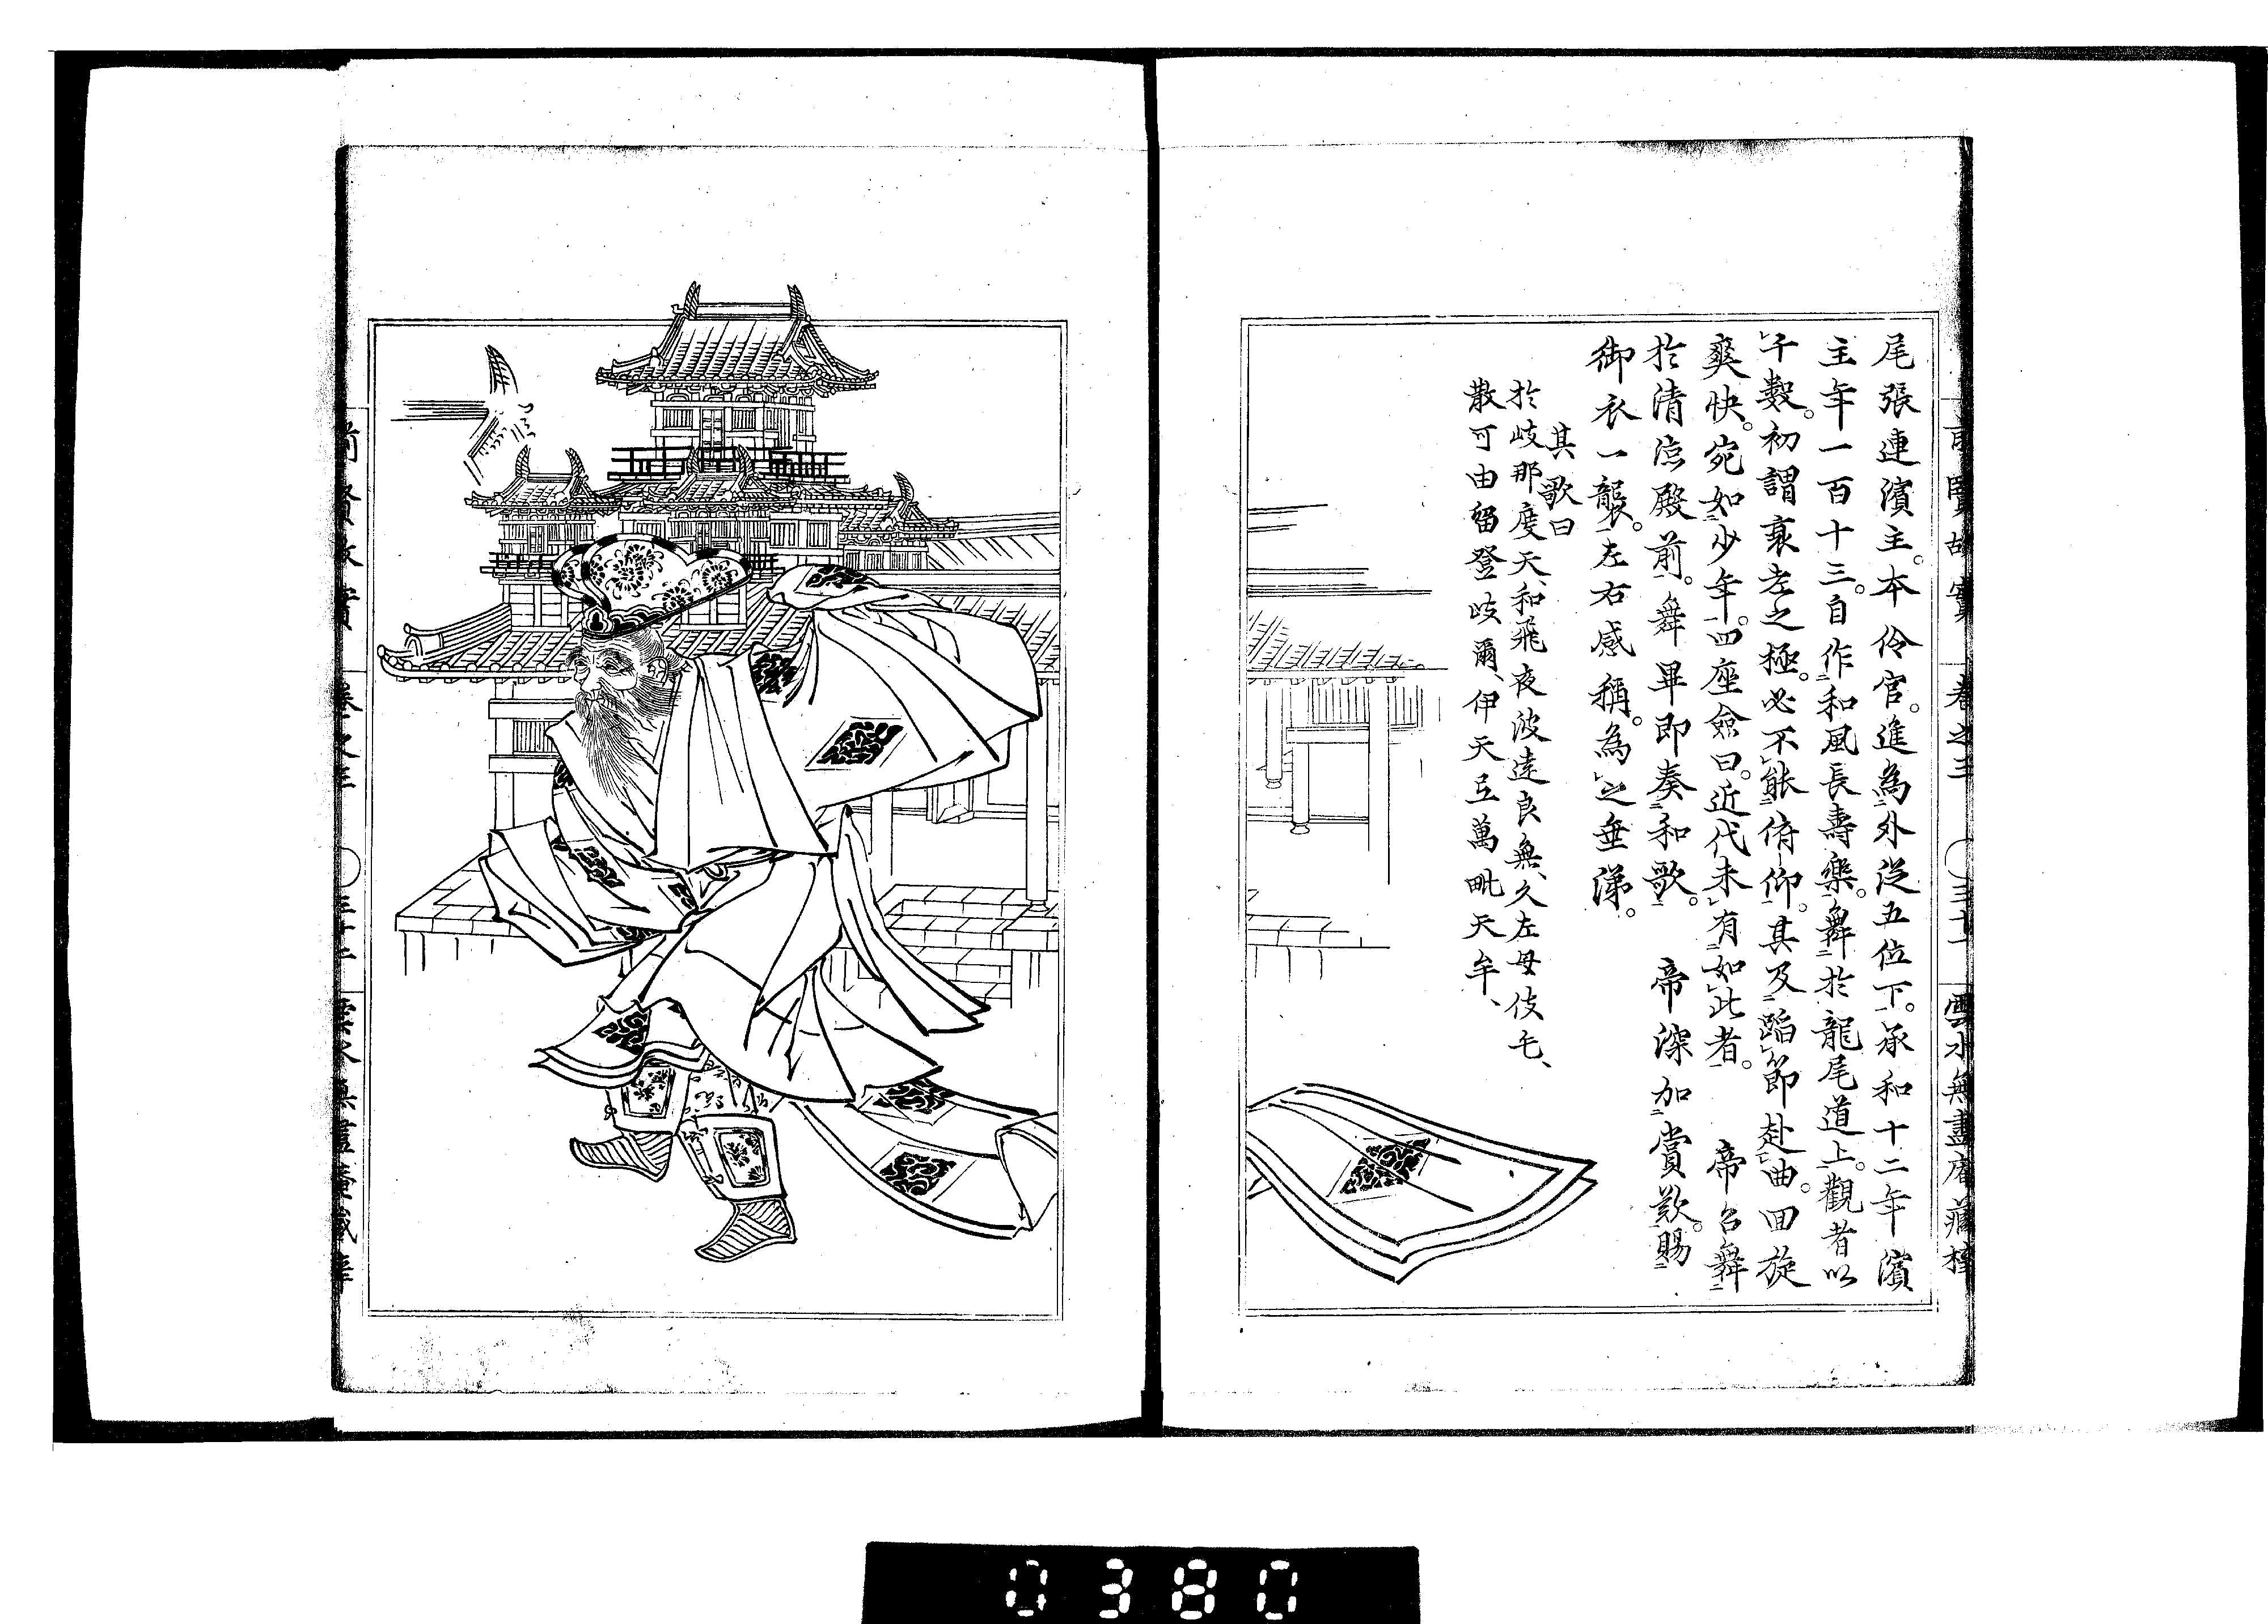 前賢故實 卷之三 〇三十一 雲水無盡庵藏梓
尾張連濱主。本伶官。進為外從五位下。承和十二年濱
主年一百十三。自作和風長壽樂。舞於龍尾道上。觀者以
千數。初謂衰老之極。必不能俯仰。其及蹈節赴曲。回旋
爽快。宛如少年。四座僉曰。近代未有如此者。帝召舞
於清涼殿前。舞畢即奏和歌。帝深加賞歎。賜
御衣一襲。左右感稱。為之垂涕。
其歌曰
於岐那度天、和飛夜波遠良無、久左母伎毛、
散可由留登岐爾、伊天弖萬毗天牟、
前賢故實
0380